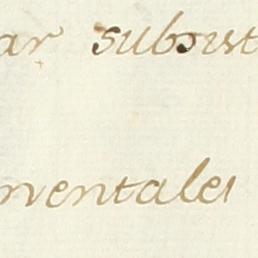 ar subsist
mentales